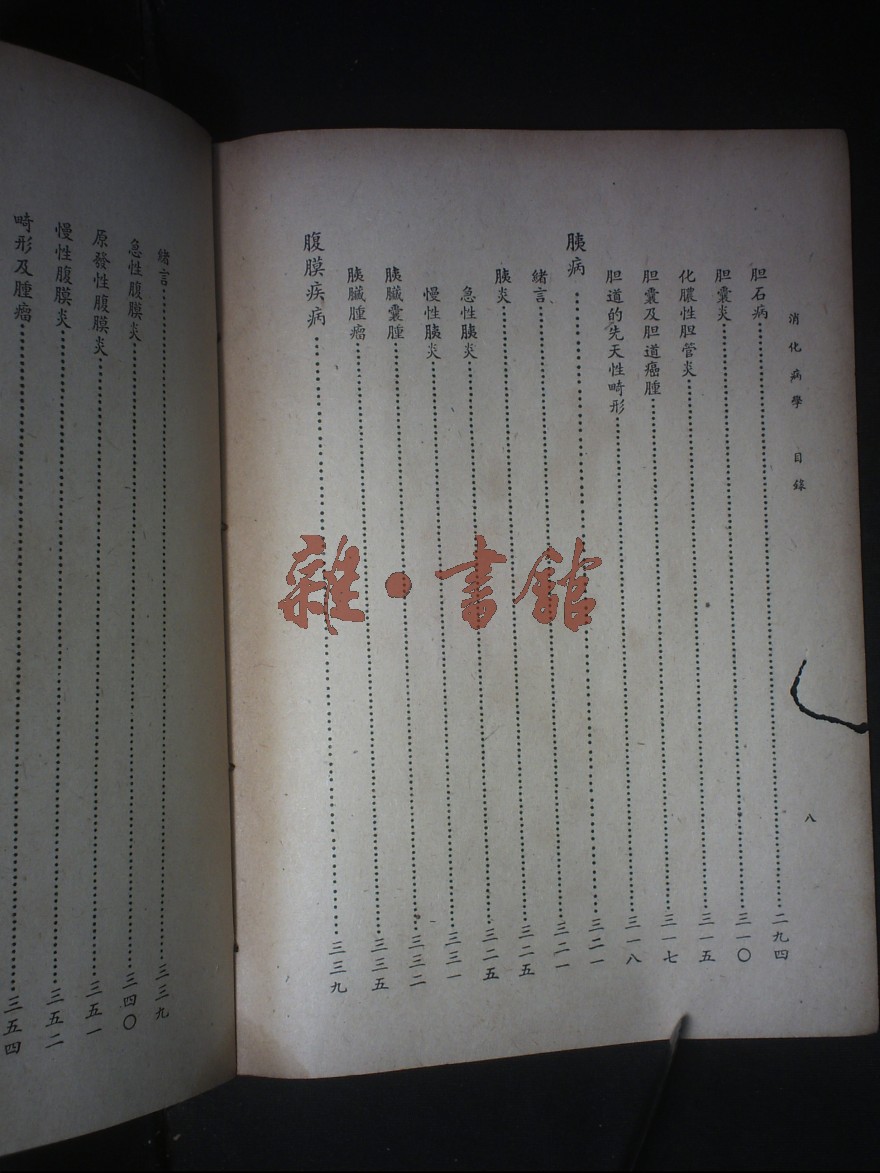 消化病學 目錄 八
胆石病 二九四
胆囊炎 三一〇
化膿性胆管炎 三一五
胆囊及胆道癌腫 三一七
胆道的先天性畸形 三一八
胰病 三二一
緒言 三二一
胰炎 三二五
急性胰炎 三二五
慢性胰炎 三三一
胰臟囊腫 三三二
胰臟腫瘤 三三五
腹膜疾病 三三九
緒言 三三九
急性腹膜炎 三四〇
原發性腹膜炎 三五一
慢性腹膜炎 三五二
畸形及腫瘤 三五四
雜·書館